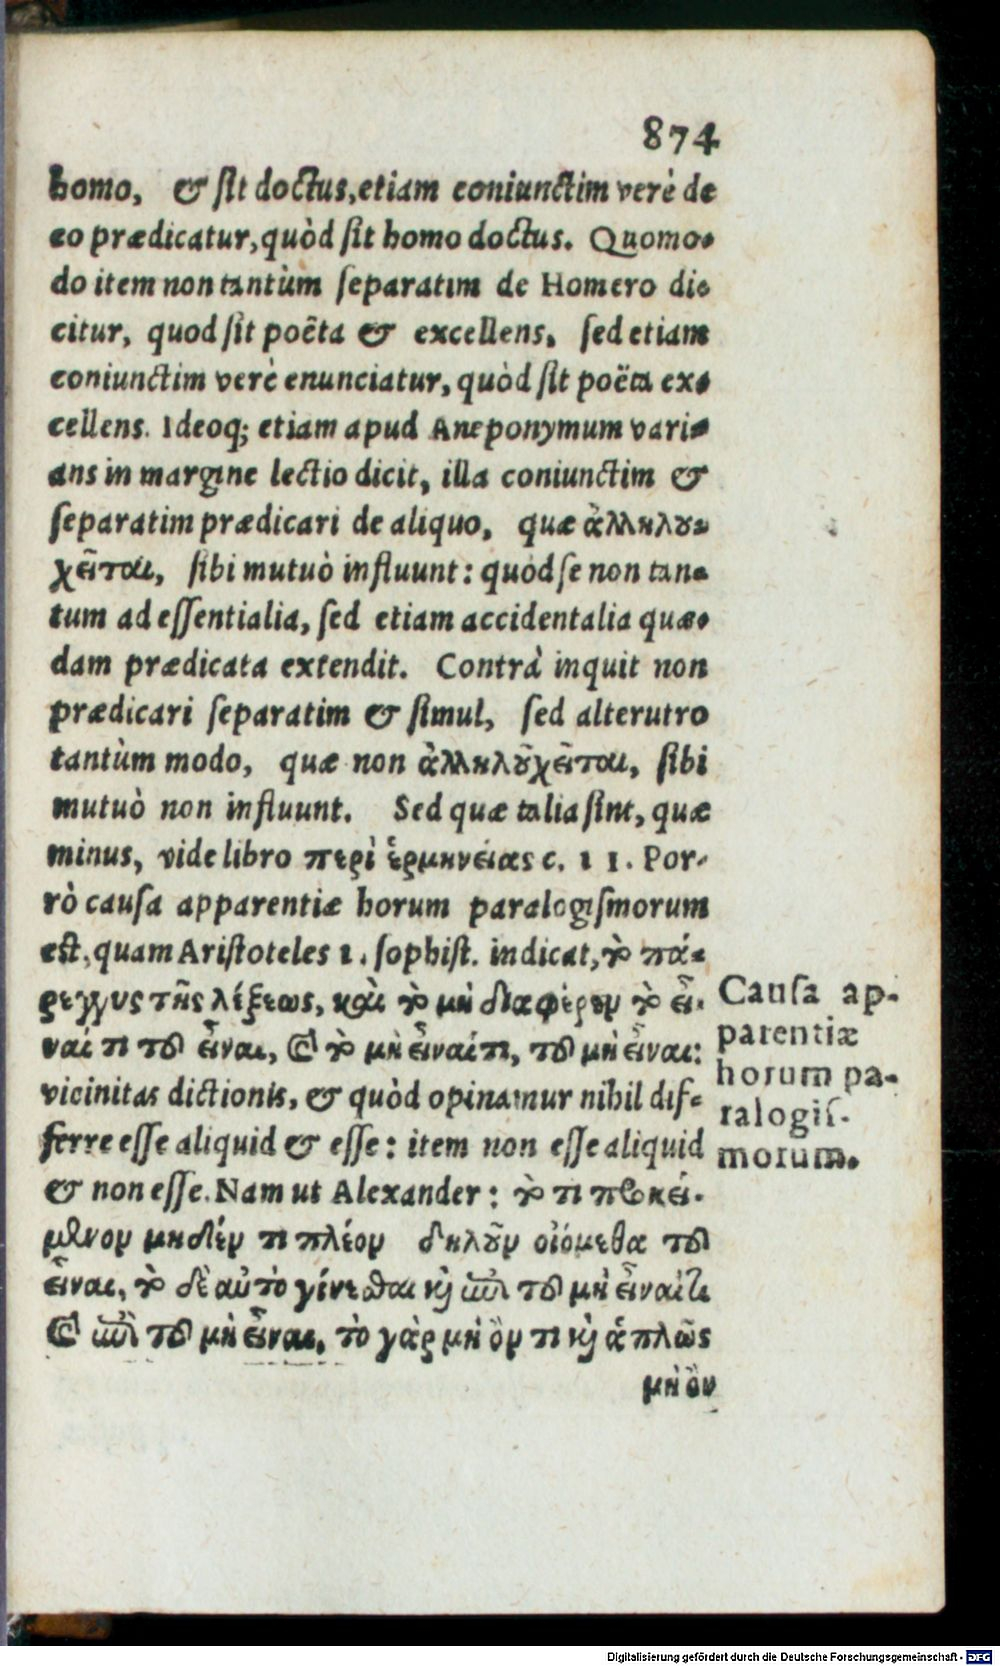 874
homo, & ſit doctus, etiam coniunctim verè de
eo prædicatur, quòd ſit homo doctus. Quomo-
do item non tantùm ſeparatim de Homero di-
citur, quod ſit poëta & excellens, ſed etiam
coniunctim verè enunciatur, quòd ſit poëta ex-
cellens. Ideoq; etiam apud Aneponymum vari-
ans in margine lectio dicit, illa coniunctim &
ſeparatim prædicari de aliquo, quæ ἀλληλου-
χεῖται, ſibi mutuò influunt: quòd ſe non tan-
tum ad eſſentialia, ſed etiam accidentalia quæ-
dam prædicata extendit. Contrà inquit non
prædicari ſeparatim & ſimul, ſed alterutro
tantùm modo, quæ non ἀλληλουχεῖται, ſibi
mutuò non influunt. Sed quæ talia ſint, quæ
minus, vide libro περὶ ἑρμηνείας c. 11. Por-
rò cauſa apparentiæ horum paralogiſmorum
eſt, quam Ariſtoteles 1. ſophiſt. indicat, τὸ πά-
ρεγγυς τῆς λέξεως, καὶ τὸ μὴ διαφέρειν τὸ εἶ-
ναί τι τοῦ εἶναι, καὶ τὸ μὴ εἶναί τι, τοῦ μὴ εἶναι:
vicinitas dictionis, & quòd opinamur nihil dif-
ferre eſſe aliquid & eſſe: item non eſſe aliquid
& non eſſe. Nam ut Alexander: τὸ τι προκεί-
μενον μηδέν τι πλέον δηλοῦν οἰόμεθα τοῦ
εἶναι, τὸ δὲ αὐτὸ γίνεσθαι καὶ ἐπὶ τοῦ μὴ εἶναί τι
καὶ ἐπὶ τοῦ μὴ εἶναι, τὸ γὰρ μὴ ὄν τι καὶ ἁπλῶς
μὴ ὂν
Cauſa ap-
parentiæ
horum pa-
ralogiſ-
morum.
Digitalisierung gefördert durch die Deutsche Forschungsgemeinschaft - DFG